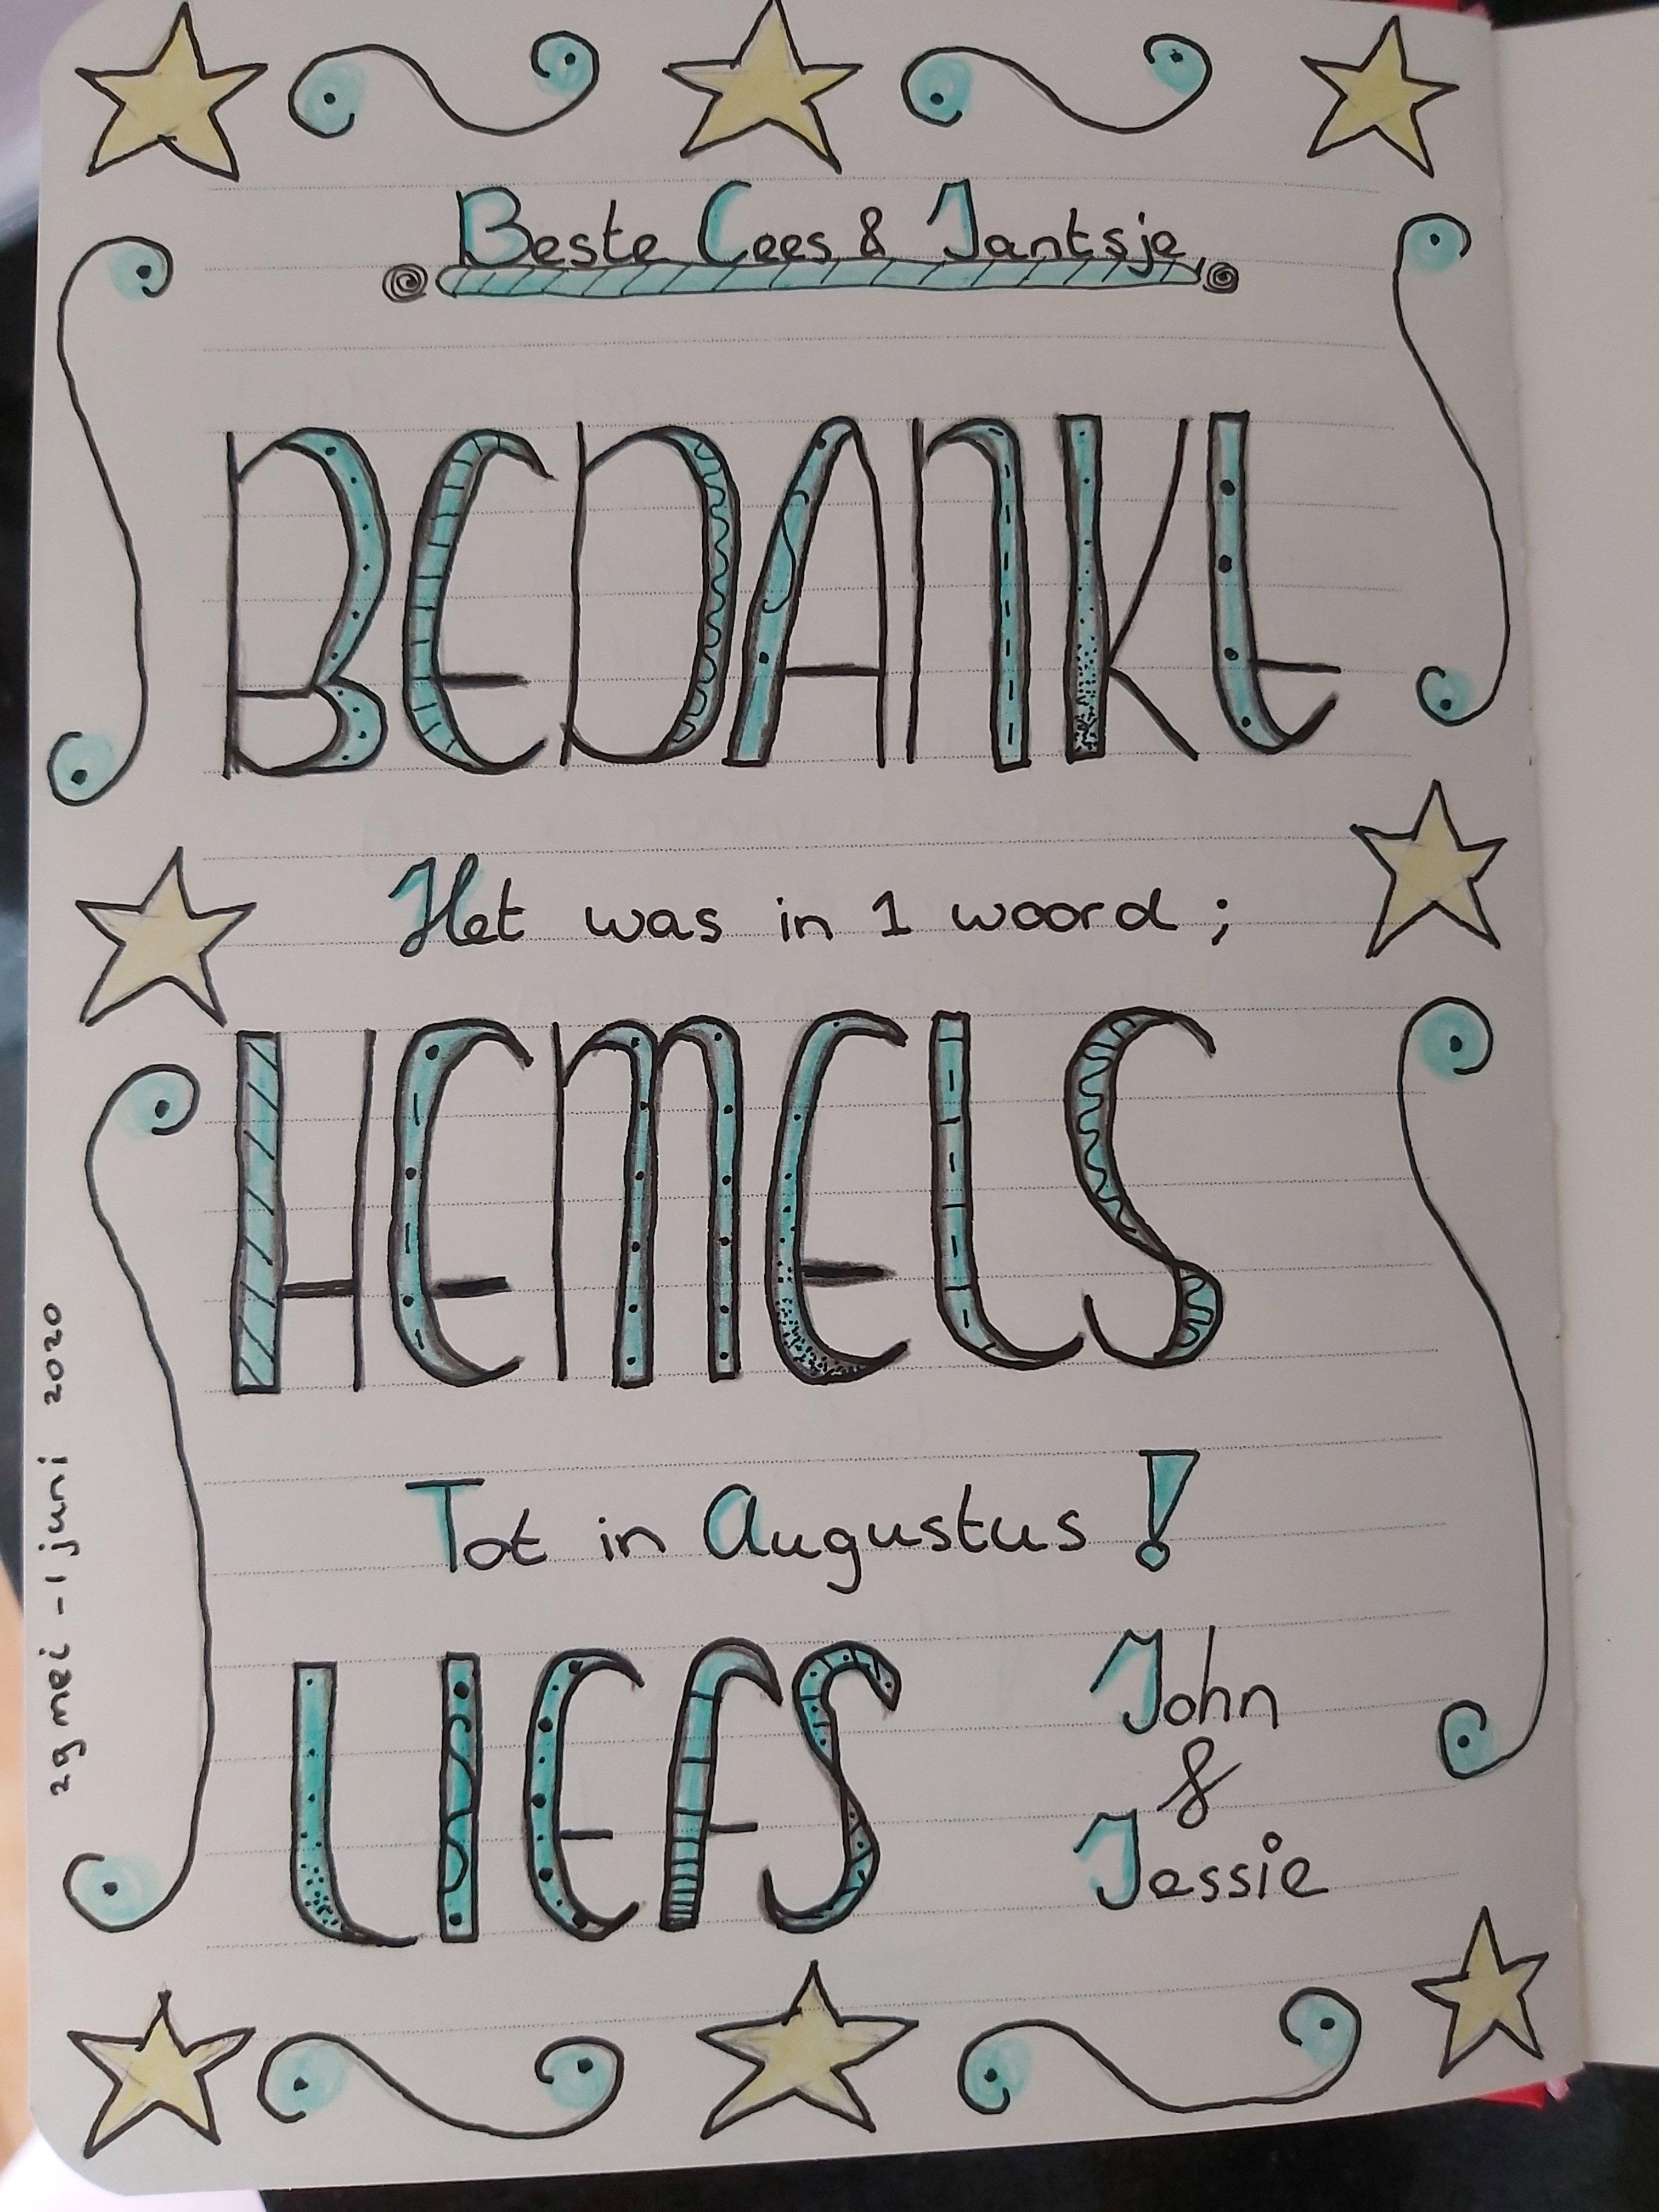 Beste Cees & Jantsje
BEDANKt
Het was in 1 woord ;
HEMELS
Tot in Augustus !
LIEFS
John
&
Jessie
29 mei - 1 juni 2020